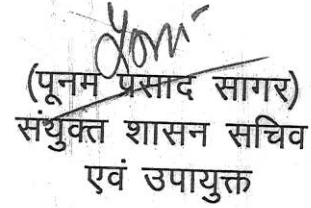 (पूनम प्रसाद सागर)
संयुक्त शासन सचिव
एवं उपायुक्त